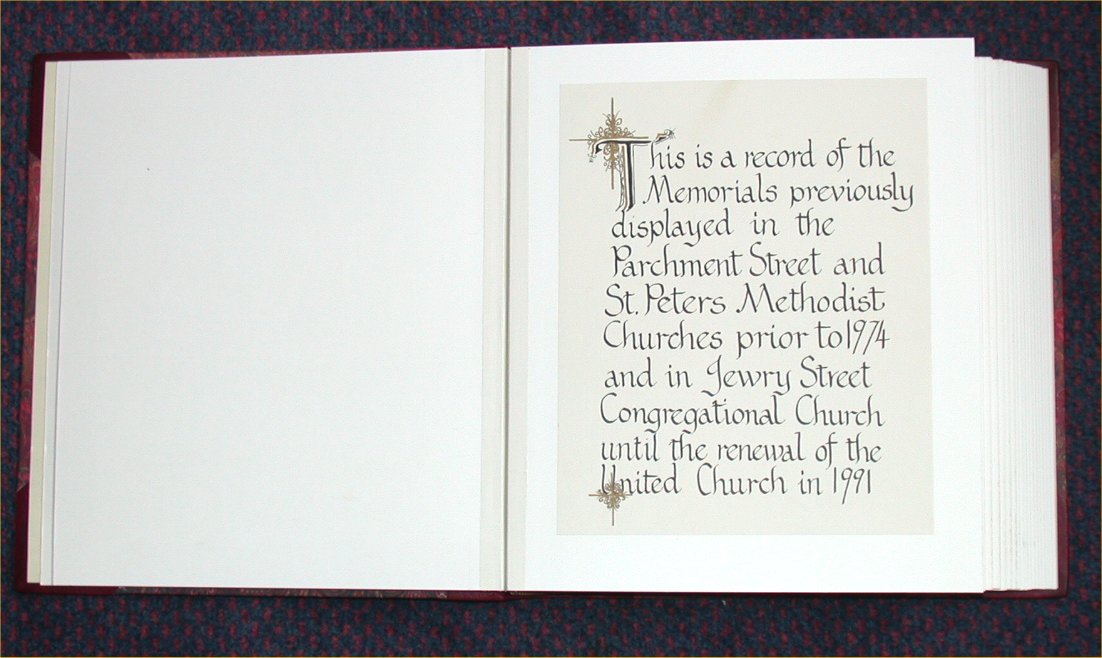 This is a record of the
Memorials previously
displayed in the
Parchment Street and
St. Peters Methodist
Churches prior to 1974
and in Jewry Street
Congregational Church
until the renewal of the
United Church in 1991